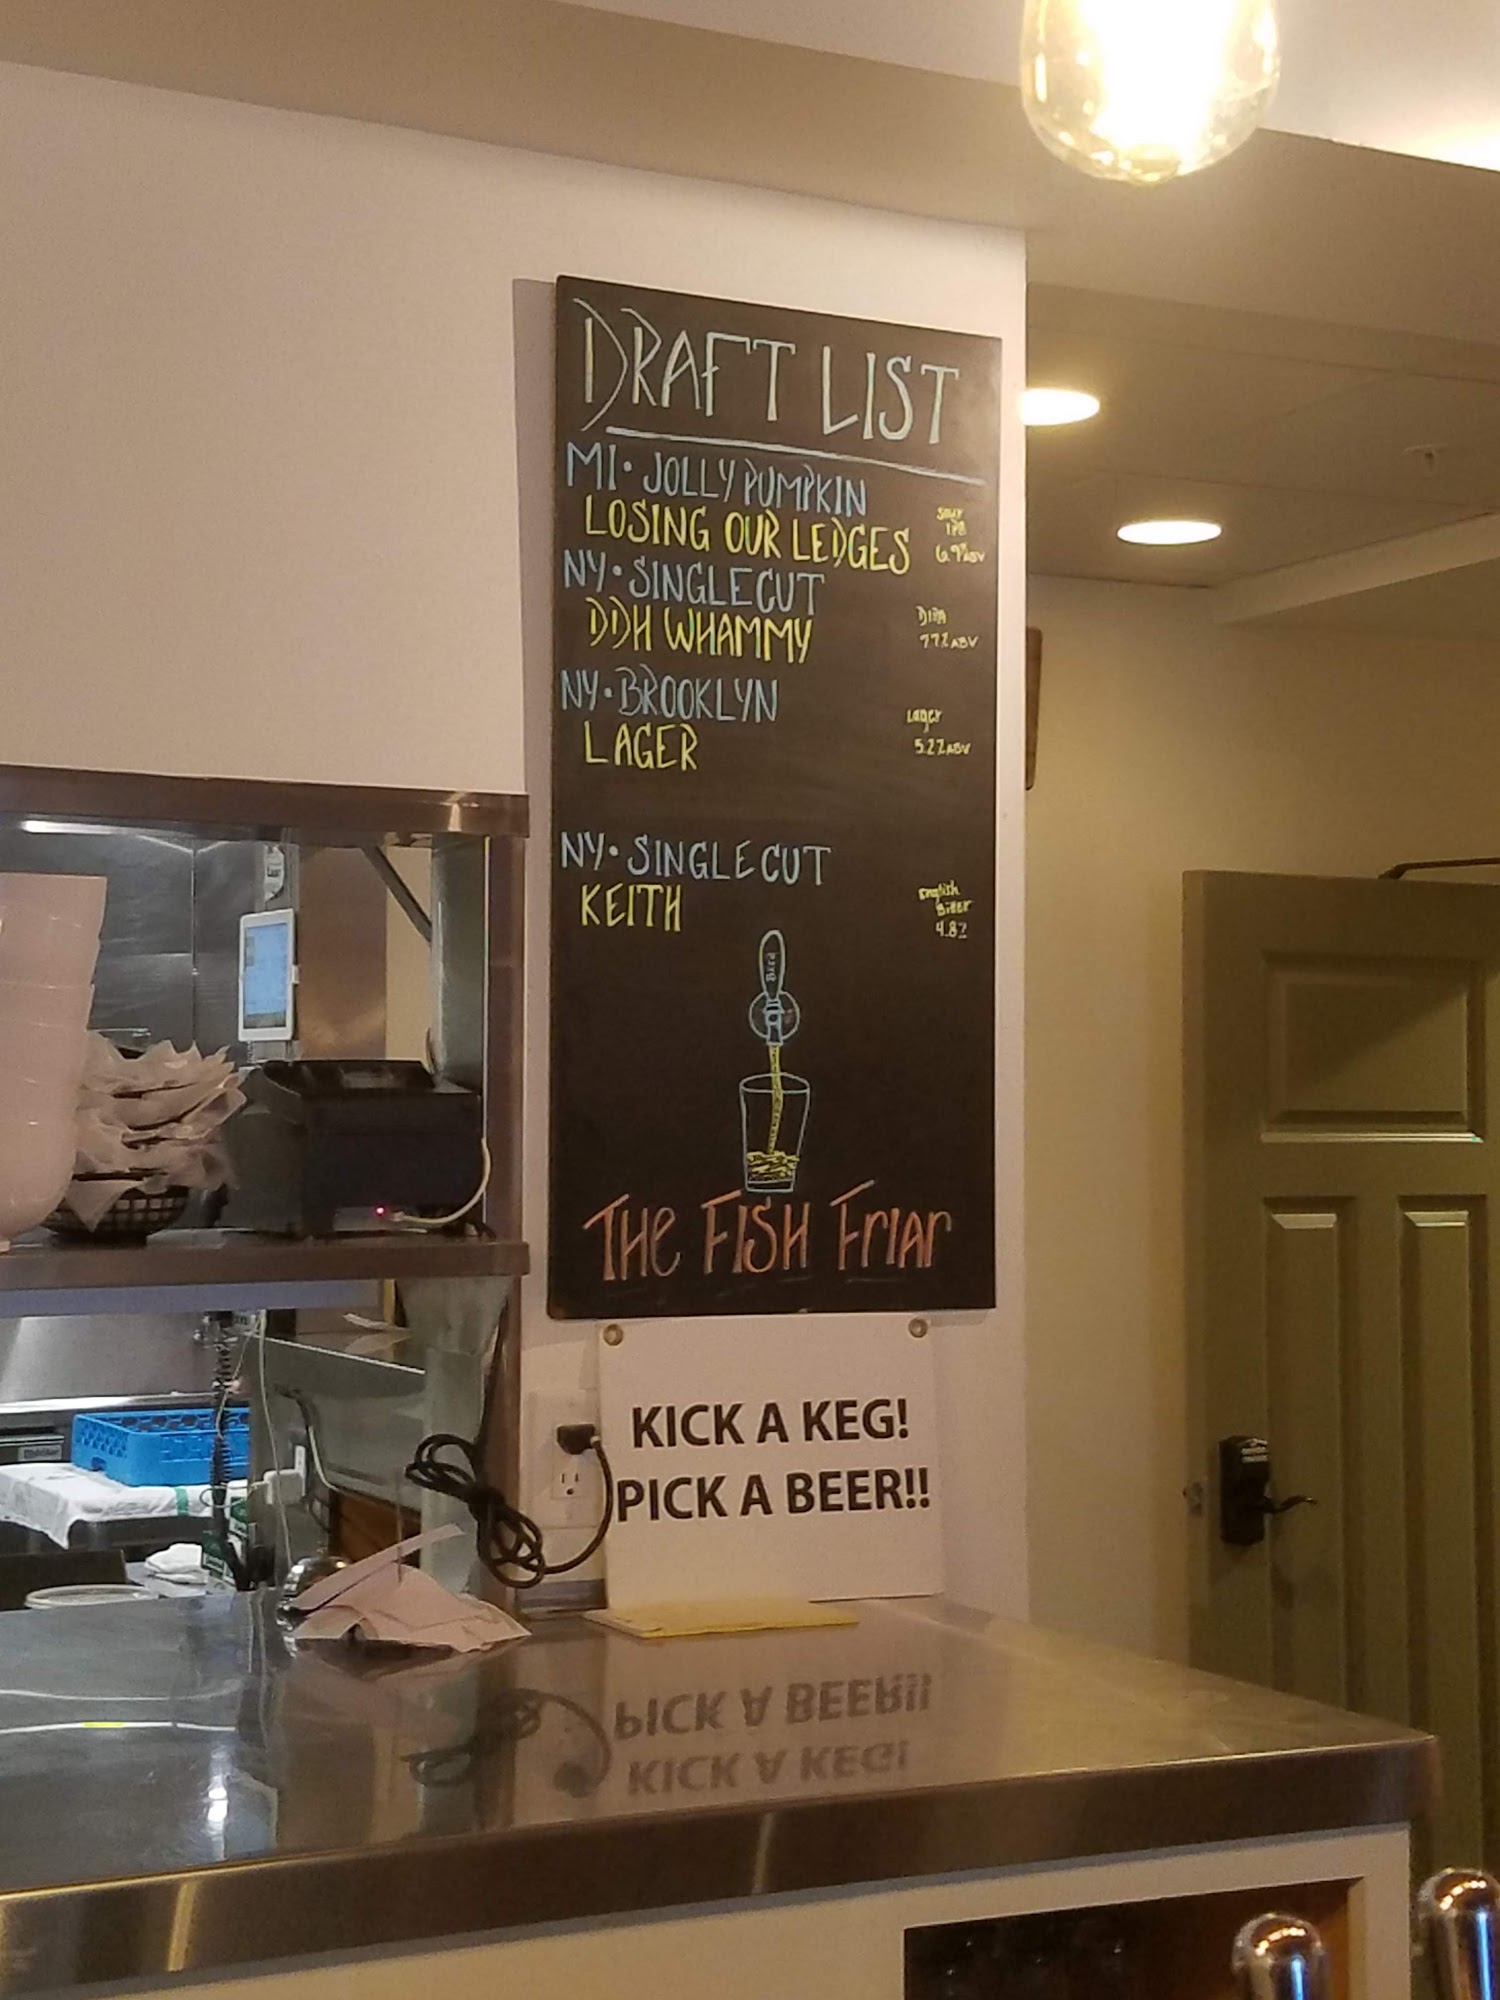 DRAFT LIST
MI • JOLLY PUMPKIN
LOSING OUR LEDGES
Sour
IPA
6.9% ABV
NY • SINGLECUT
DDH WHAMMY
DIPA
7.7% ABV
NY • BROOKLYN
LAGER
Lager
5.2% ABV
NY • SINGLECUT
KEITH
English
Bitter
4.8%
THE FISH FRIAR
KICK A KEG!
PICK A BEER!!